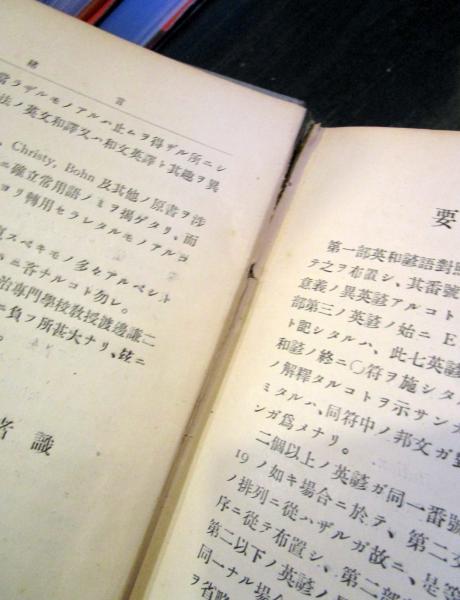 緒言
常ラザルモノアルハ止ムヲ得ザル所ニシ
法ノ英文和譯又ハ和文英譯ト其趣ヲ異
Christy, Bohn 及其他ノ原書ヲ涉
ニ確立常用語ノミヲ揭ゲタリ、而
ヨリ轉用セラレタルモノアルヨ
スベキモノ多々アルベシト
ニ吝ナルコト勿レ。
治專門學校敎授渡邊謙二
ニ負フ所甚大ナリ、玆ニ
者識
要
第一部英和諺語對照
テ之ヲ布置シ、其番號
意義ノ異英諺アルコト
部第三ノ英諺ノ始ニ E
ト記シタルハ、此七英諺
和諺ノ終ニ〇符ヲ施シタ
ノ解釋タルコトヲ示サンガ
ミタルハ、同符中ノ邦文ガ
ンガ爲メナリ。
二個以上ノ英諺ガ同一番號
19 ノ如キ場合ニ於テ、第二
ノ排列ニ從ハザルガ故ニ、是等
序ニ從テ布置シ、第二部
第二以下ノ英諺ノ
同一ナル場合
ヲ省略